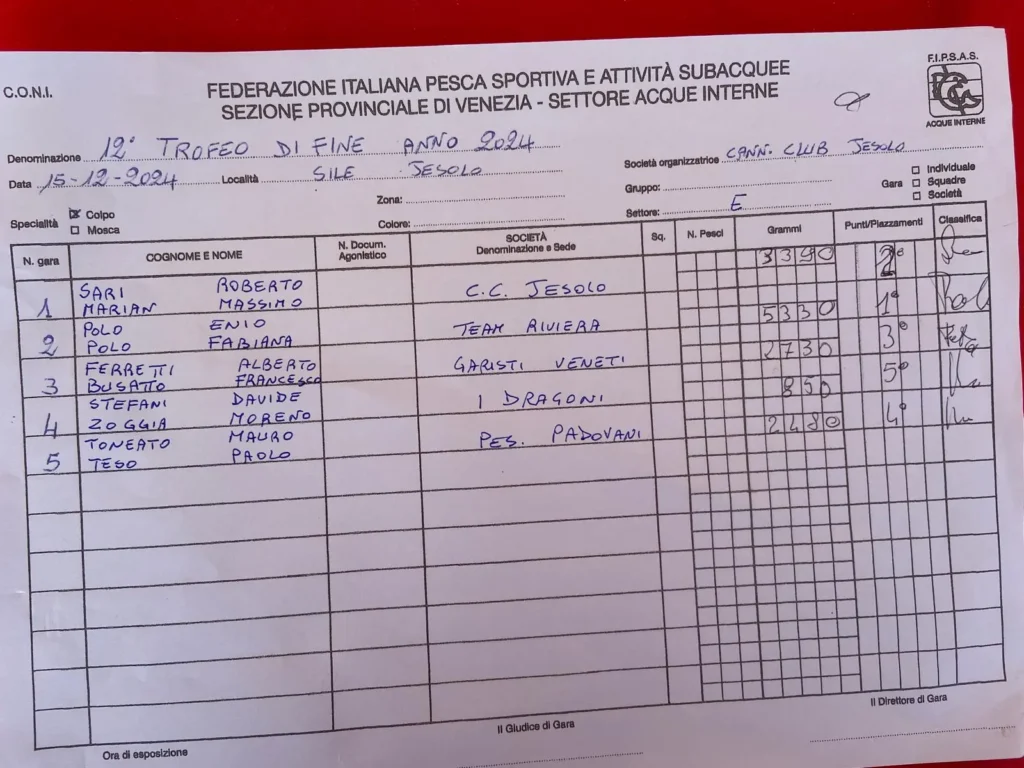 C.O.N.I.
FEDERAZIONE ITALIANA PESCA SPORTIVA E ATTIVITÀ SUBACQUEE
SEZIONE PROVINCIALE DI VENEZIA - SETTORE ACQUE INTERNE
F.I.P.S.A.S.
ACQUE INTERNE
Denominazione 12° TROFEO DI FINE ANNO 2024
Società organizzatrice CANN. CLUB JESOLO
Data 15-12-2024 Località SILE JESOLO
Zona: Gruppo: Gara Individuale
Squadre
Società
Specialità Colpo
Mosca
Colore: Settore: E
N. gara COGNOME E NOME N. Docum. Agonistico SOCIETÀ Denominazione e Sede Sq. N. Pesci Grammi Punti/Piazzamenti Classifica
1 SARI ROBERTO C.C. JESOLO 3390 2°
MARIAN MASSIMO
2 POLO ENIO TEAM RIVIERA 5330 1°
POLO FABIANA
3 FERRETTI ALBERTO GARISTI VENETI 2730 3°
BUSATTO FRANCESCO
4 STEFANI DAVIDE I DRAGONI 850 5°
ZOGGIA MORENO
5 TONEATO MAURO PES. PADOVANI 2480 4°
TESO PAOLO
Ora di esposizione Il Giudice di Gara Il Direttore di Gara